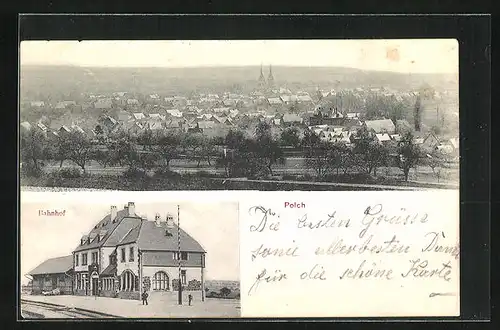 Polch
Bahnhof
Die besten Grüsse
sowie allerbesten Dank
für die schöne Karte